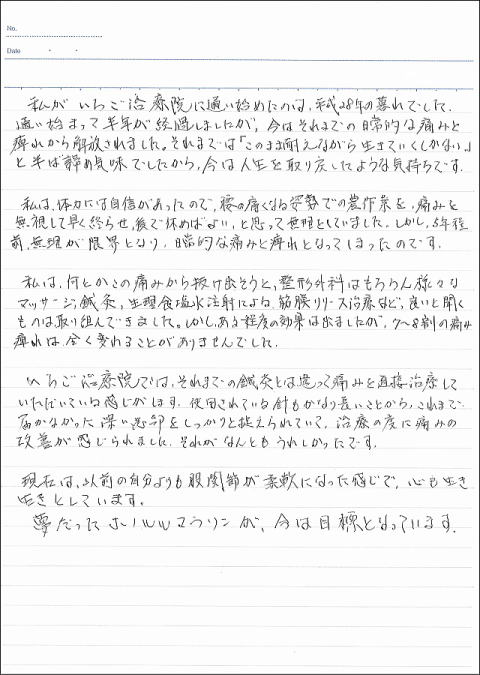 No.
Date
私がいちご治療院に通い始めたのは、平成28年の暮れでした。
通い始まって半年が経過しましたが、今はそれまでの日常的な痛みと
痺れから解放されました。それまでは「このまま耐えながら生きていくしかない。」
と半ば諦め気味でしたから、今は人生を取り戻したような気持ちです。
私は、体力には自信があったので、腰の痛くなる姿勢での農作業を、痛みを
無視して早く終らせ、後で休めばよい、と思って無理をしていました。しかし、5年程
前、無理が限界となり、日常的な痛みと痺れとなってしまったのです。
私は、何とかこの痛みから抜け出そうと、整形外科はもちろん様々な
マッサージ、鍼灸、生理食塩水注射による筋膜リリース治療など、良いと聞く
ものは取り組んできました。しかし、ある程度の効果は出ましたが、7〜8割の痛み
痺れは、全く変わることがありませんでした。
いちご治療院では、それまでの鍼灸とは違って痛みを直接治療して
いただいている感じがします。使用されている針もかなり長いことから、これまで
届かなかった深い患部をしっかりと捉えられていて、治療の度に痛みの
改善が感じられました。それがなんともうれしかったです。
現在は、以前の自分よりも股関節が柔軟になった感じで、心も生き
生きとしています。
夢だったホノルルマラソンが、今は目標となっています。